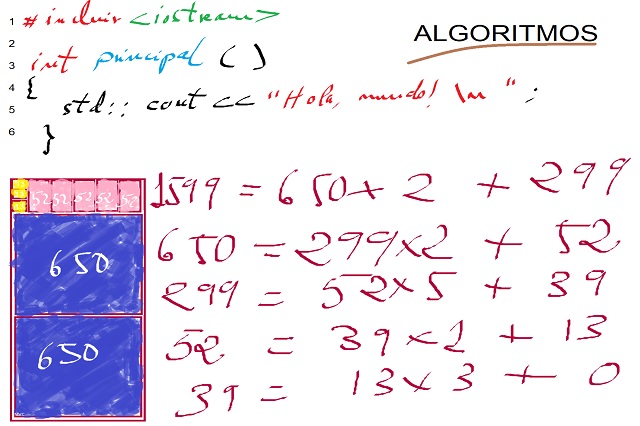 ALGORITMOS
1 # incluir <iostream>
2
3 int principal ( )
4 {
5 std:: cout << "Hola, mundo! \n" ;
6 }
52 52 52 52 52
650
650
1599 = 650 × 2 + 299
650 = 299 × 2 + 52
299 = 52 × 5 + 39
52 = 39 × 1 + 13
39 = 13 × 3 + 0